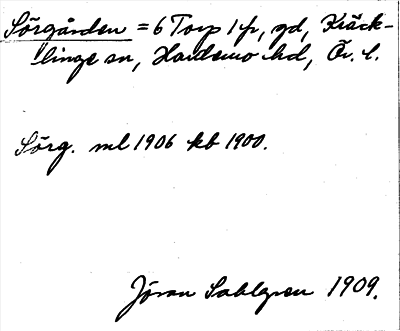 Sörgården = 6 Torp 1 fr, gd, Kräck-
linge sn, Hardemo hd, Ör. l.
Sörg. ml 1906 kb 1900.
Jöran Sahlgren 1909.